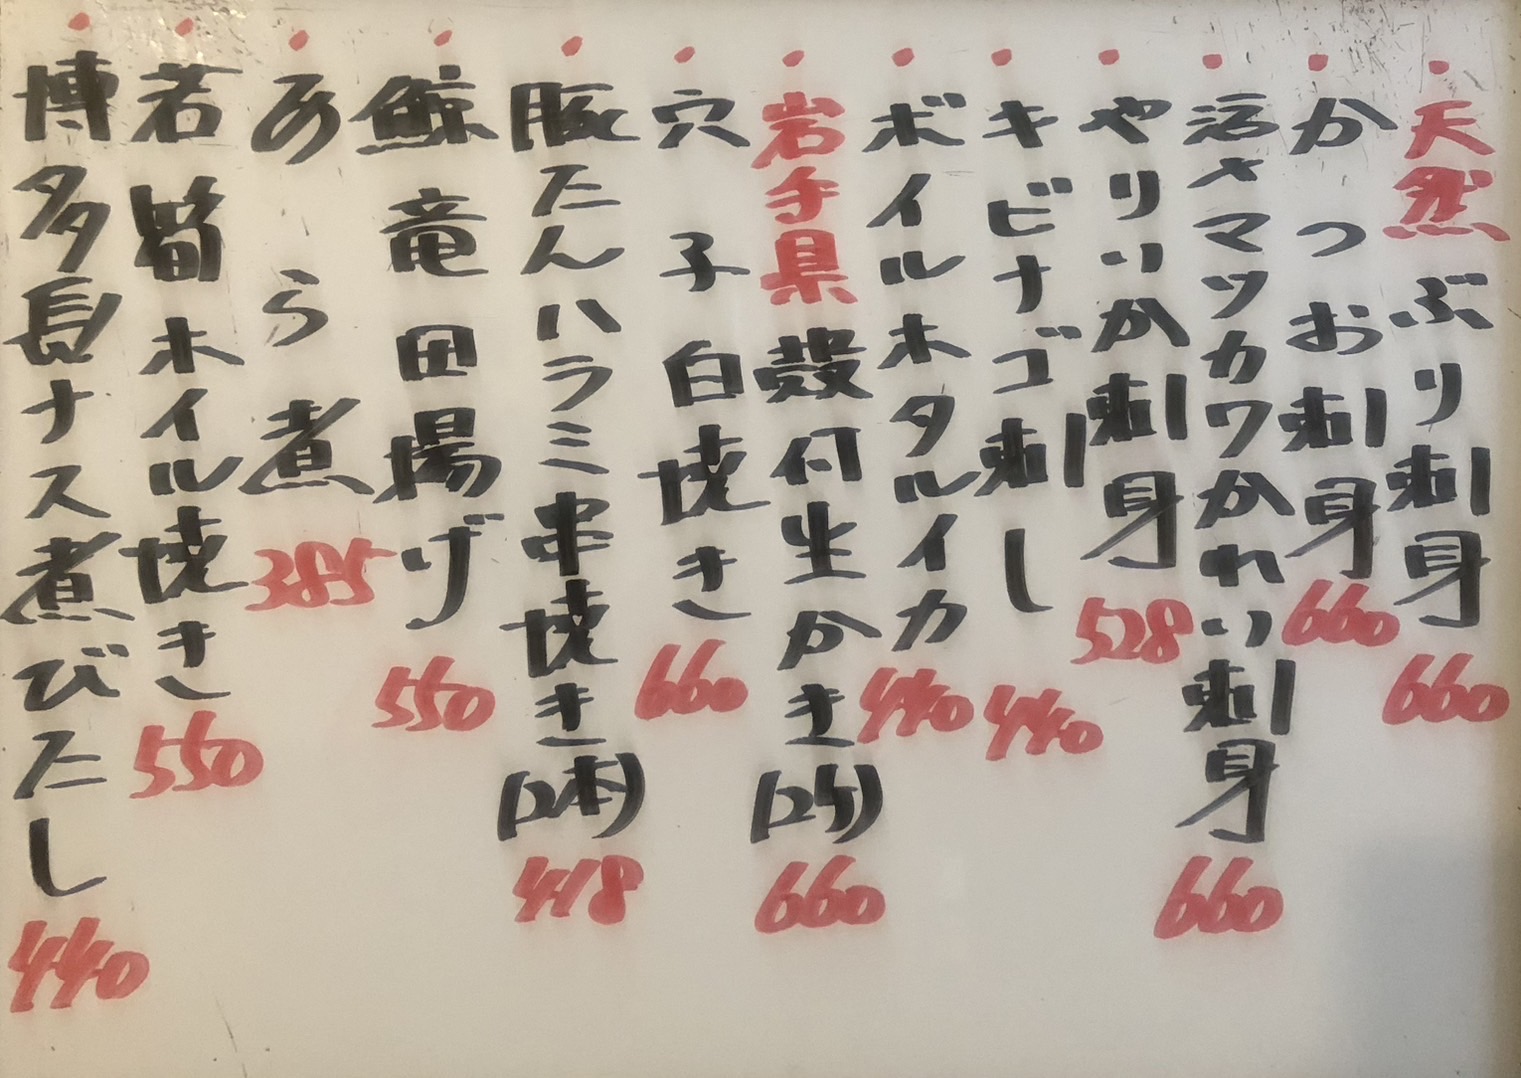 ・天然ぶり刺身 660
・かつお刺身 660
・活〆マツカワかれい刺身 660
・やりいか刺身 528
・キビナゴ刺し 440
・ボイルホタルイカ 440
・岩手県殻付生かき(2ケ) 660
・穴子白焼き 660
・豚たんハラミ串焼き(2本) 418
・鯨竜田揚げ 550
・あら煮 385
・若筍ホイル焼き 550
・博多長ナス煮びたし 440